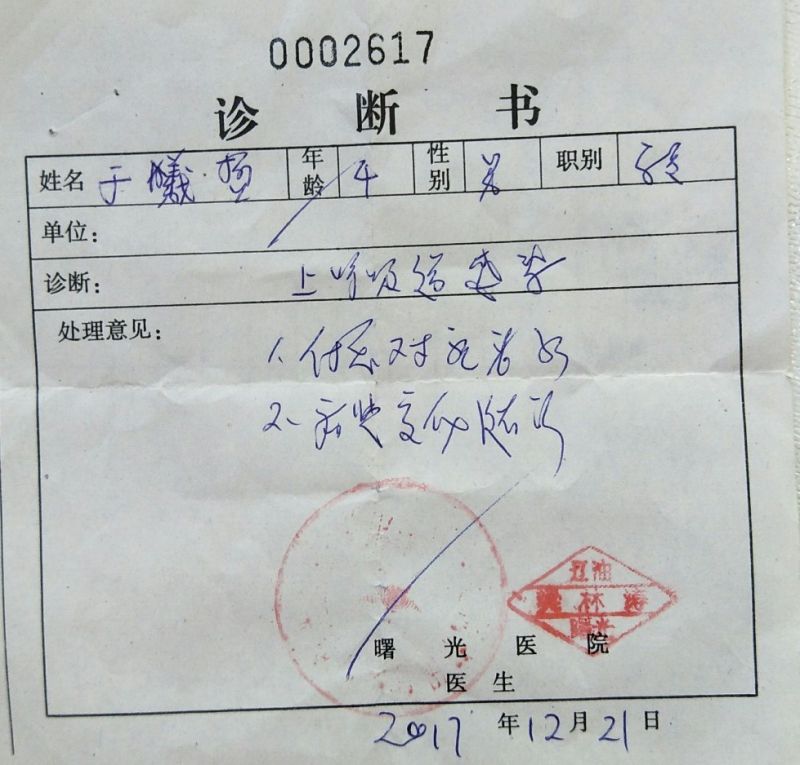 0002617
诊 断 书
姓名 于曦 年龄 4 性别 男 职别
单位:
诊断: 上呼吸道感染
处理意见:
1、休息对症治
2、病变随诊
江油
林
曙光
曙 光 医 院
医 生
2017 年 12 月 21 日